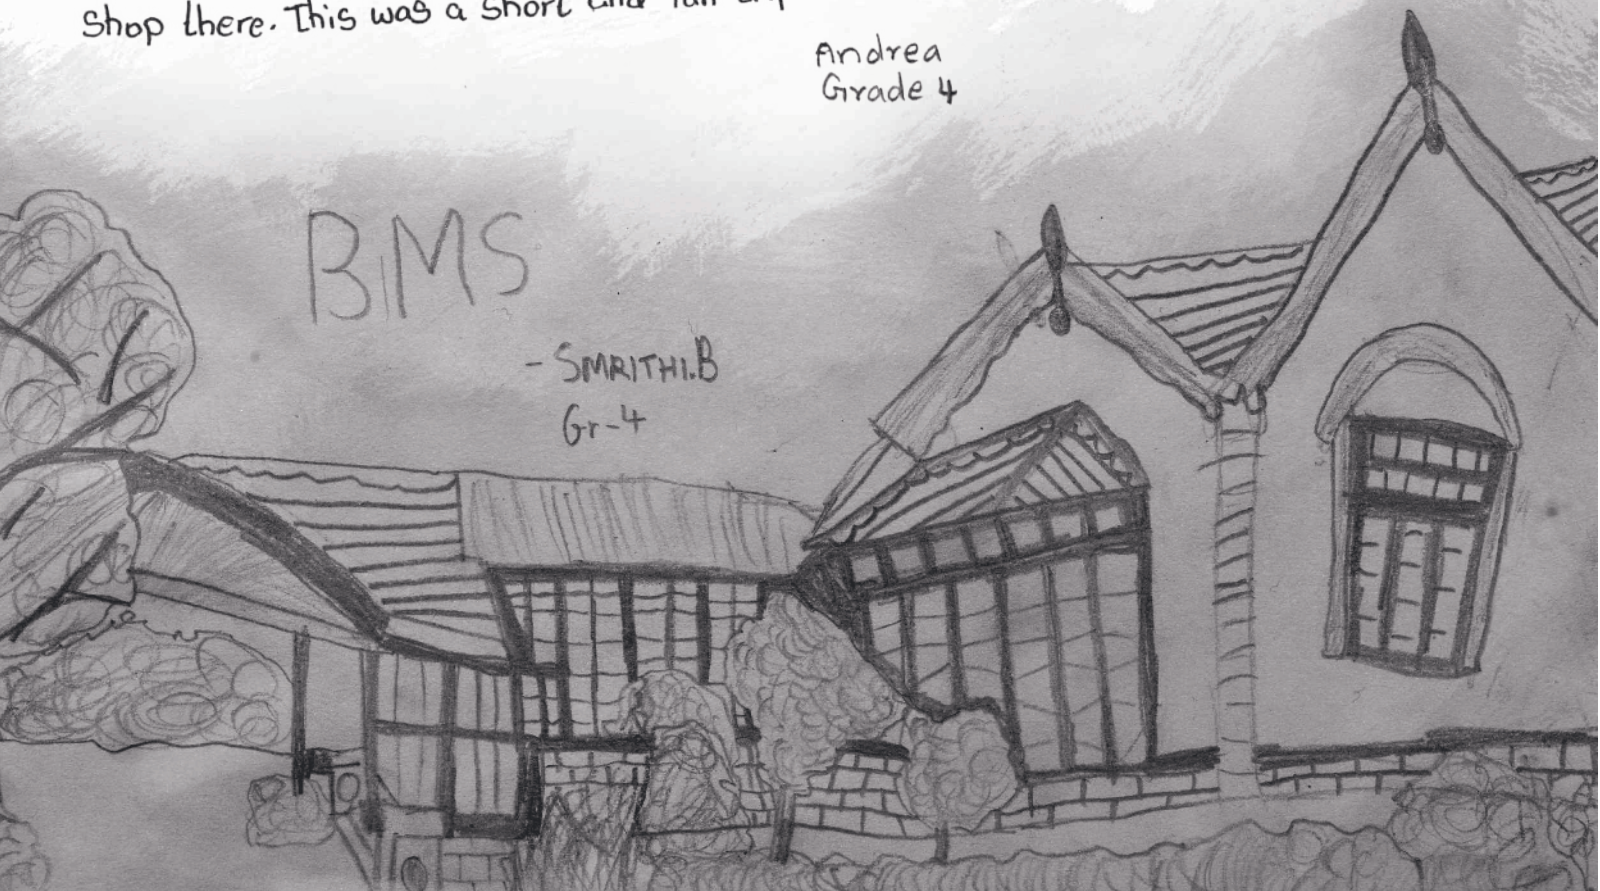 Shop there. This was a short
Andrea
Grade 4
BMS
- SMRITHI.B
Gr-4